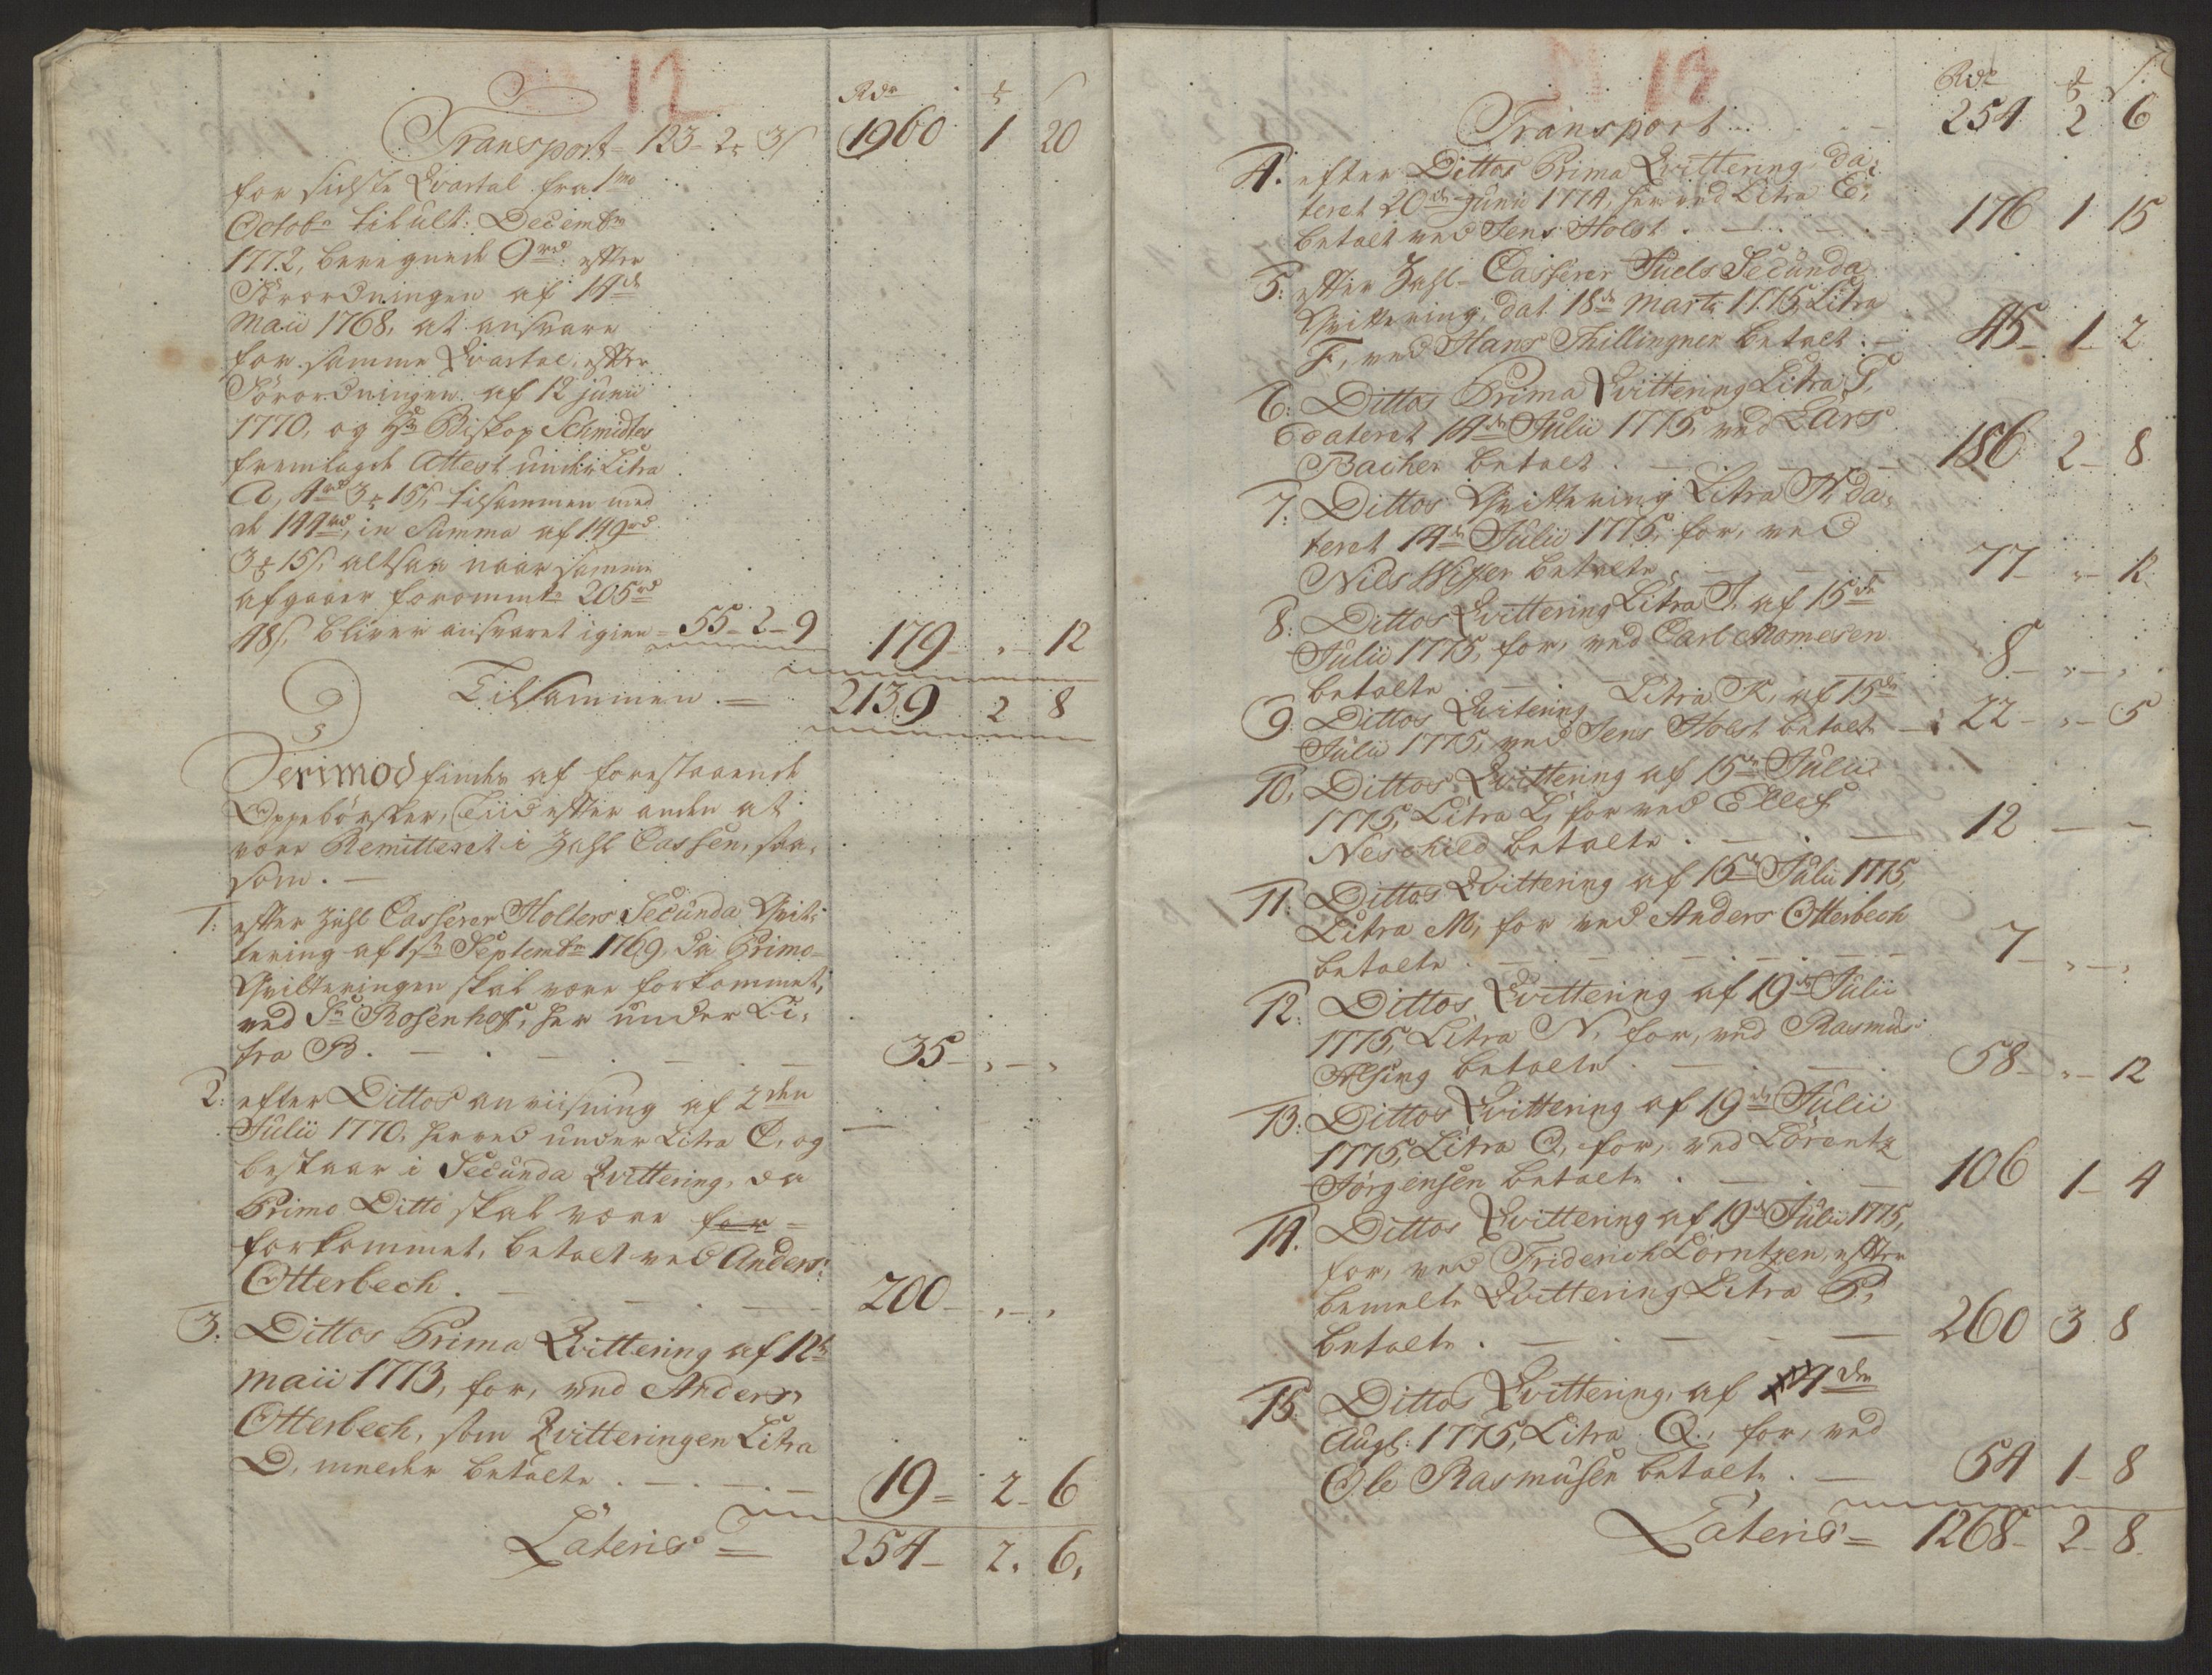 12
Rdr ₰ s
Transport 123 - 2 - 3 s 1960 1 20
for sidste Qvartal fra 1mo
Octobr til ult: Decembr
1772, beregnede 9 rd: efter
Forordningen af 14de
Maii 1768, at ansvare
for samme Qvartal, efter
Forordningen af 12 Junii
1770, og Hr Biskop Schmidtes
fremlagde Attest under Litra
A, 4 rd 3 15 s, tilsammen med
de 144 rd, in Summa af 149 rd
3 15 s, altsaa naar samme
afgaaer forommte 205 rd
48 s, bliver ansvaret igien = 55 - 2 - 9 179 - , - 12
Tilsammen = 2139 2 8
Derimod findes af forestaaende
Oppebørsler, Tiid efter anden at
være Remitteret i Zahl Cassen, saa-
som. —
1: efter Zahl Casserer Holters Secunda Qvit-
tering af 1ste Septembr 1769, da Primo
Qvitteringen skal være forkommet,
ved Sr Rosenhoff, her under Li-
tra B. — 35 - , - ,
2: efter Dittos anviisning af 2den
Julii 1770, herved under Litra C, og
bestaar i Secunda Qvittering, da
Primo Ditto skal være for =
forkommet, betalt ved Anders
Otterbech. — 200 - , - ,
3: Dittos Prima Qvittering af 12te
Maii 1773, for, ved Anders
Otterbech, som Qvitteringen Litra
D, melder betalte. — 19 = 2 - 6
Lateris = 254 - 2. 6.
13
Rdr ₰ s
Transport 254 2 6
4. efter Dittos Prima Qvittering da-
teret 20de Junii 1774, her ved Litra E,
betalt ved Jens Holst. — 176 1 15
5: efter Zahl-Casserer Juels Secunda
Qvittering, dat 18de Marti 1775, Litra
F, ved Hans Thillingner betalt. — 45 - 1 - 2
6: Dittos Prima Qvittering Litra G,
dateret 14de Julii 1775, ved Lars
Bacher betalt. — 186 2 - 8
7: Dittos Qvittering Litra H, da-
teret 14de Julii 1775, for, ved
Nils Wisser betalte. — 77 - , - 12
8: Dittos Qvittering Litra I, af 15de
Julii 1775, for, ved Carl Momesen
betalte — 8 - , - ,
9: Dittos Qvitering Litra K, af 15de
Julii 1775, ved Jens Holst betalt — 22 - , - 5
10. Dittos Qvittering af 15de Julii
1775, Litra L, for ved Ellef
Neschild betalte. — 12 - —
11: Dittos Qvittering af 15de Julii 1775,
Litra M, for ved Anders Otterbech
betalte. — 7 - , - ,
12: Dittos Qvittering af 19de Julii
1775, Litra N, for, ved Rasmus
Alsing betalte. — 58 - , - 12
13: Dittos Qvittering af 19de Julii
1775, Litra O, for, ved Lorentz
Jørgensen betalte. — 106 1 - 4
14. Dittos Qvittering af 19de Julii 1775,
for, ved Friderich Lorntzen, efter
bemelte Qvittering Litra P,
betalte. — 260 3 8
15 Dittos Qvittering, af 4den
Augs: 1775, Litra Q., for, ved
Ole Rasmusen betalte. — 54 1 - 8
Lateris = 1268 - 2 - 8